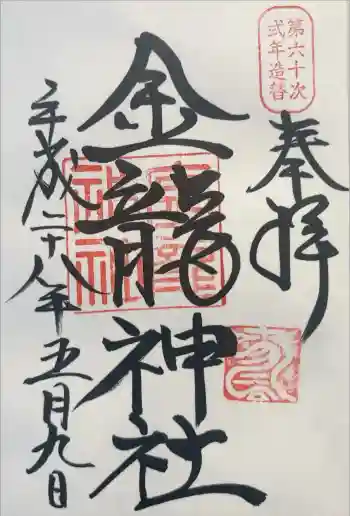 第六十次
式年造替
奉拝
金龍神社
平成二十八年五月九日